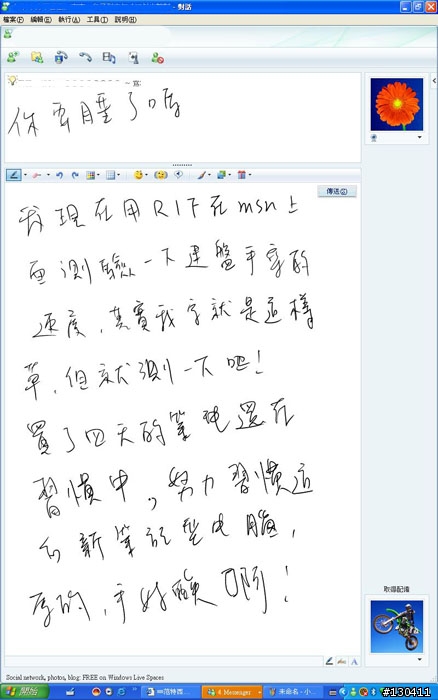 對話
檔案(F) 編輯(E) 執行(A) 工具(T) 說明(H)
~ 寫:
你要睡了嗎
傳送(S)
我現在用R1F在msn上
面測驗一下鍵盤手寫的
速度,其實我字就是這樣
草,但就測一下吧!
買了四天的筆電還在
習慣中,努力習慣這
台新筆記型電腦,
寫的,手好酸啊!
取得配備
A
Social network, photos, blog: FREE on Windows Live Spaces
開始
4 Messenger
未命名 - 小...
#130411